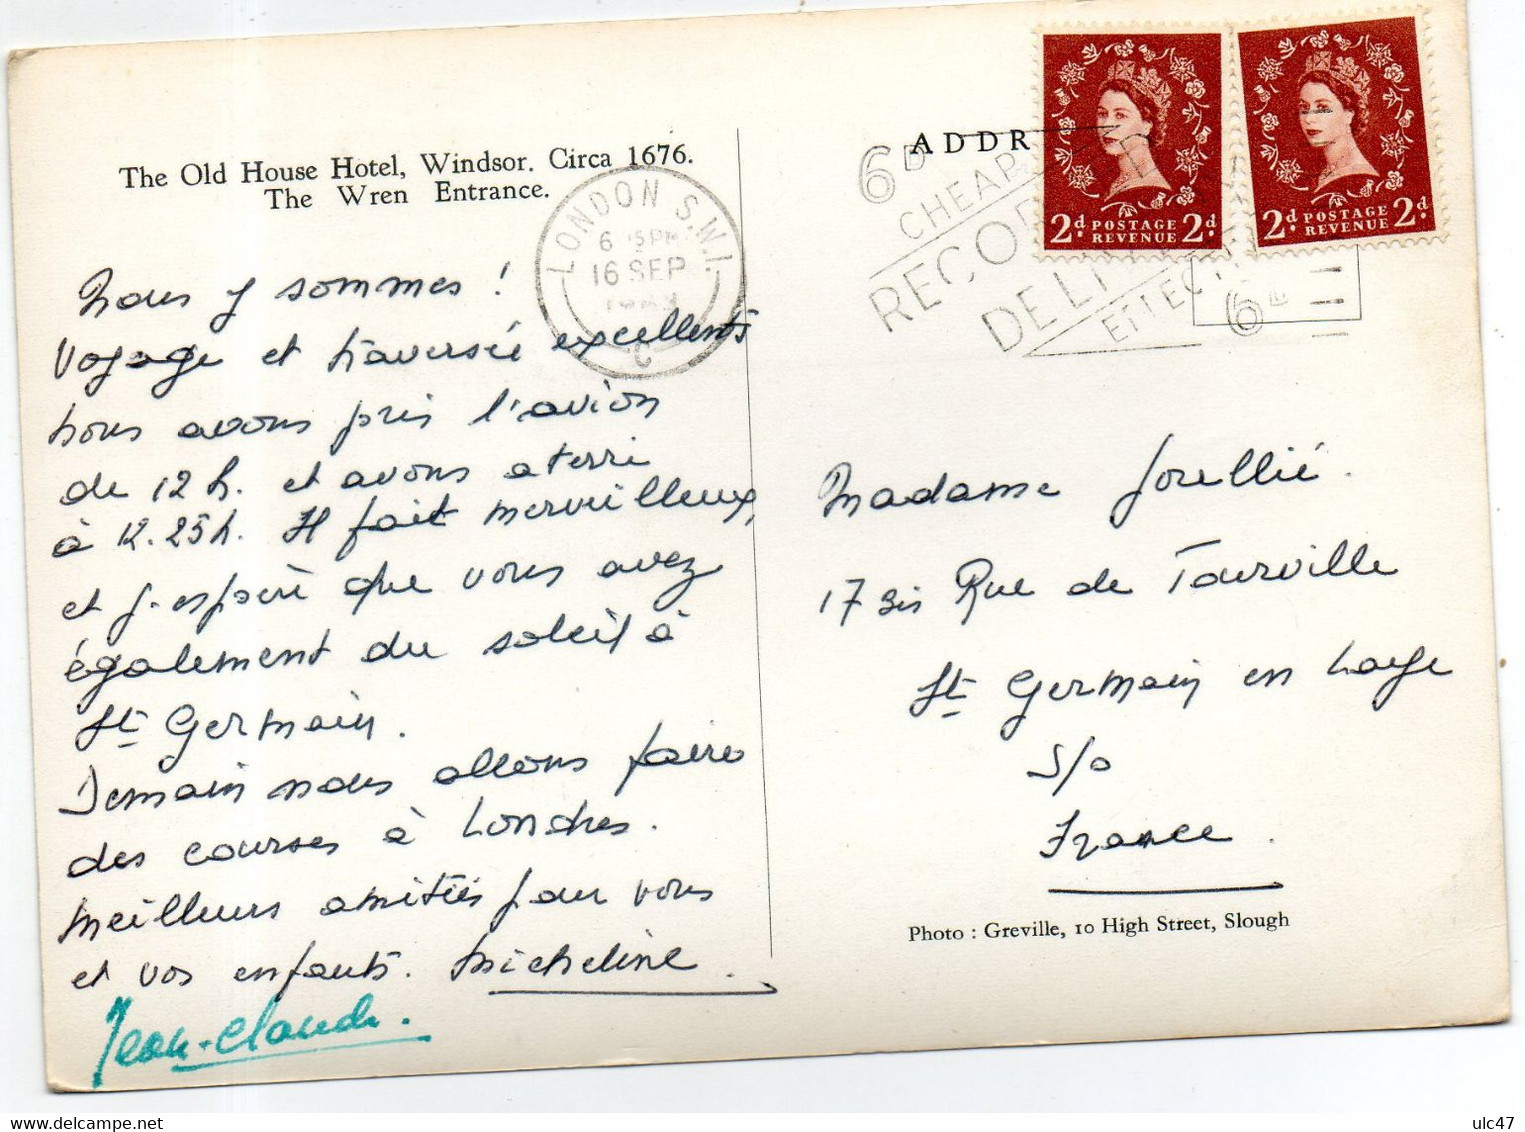 The Old House Hotel, Windsor. Circa 1676.
The Wren Entrance.
Nous y sommes !
Voyage et traversée excellents
nous avons pris l'avion
de 12 h. et avons aterri
à 12.25 h. Il fait merveilleux,
et j'espère que vous avez
également du soleil à
St Germain.
Demain nous allons faire
des courses à Londres.
Meilleurs amitiés pour vous
et vos enfants. Micheline.
Jean-Claude.
LONDON S.W.1.
16 SEP
C
ADDR
6D
CHEAP
RECOR
DE L
EFFEC
6D
2d POSTAGE REVENUE 2d
2d POSTAGE REVENUE 2d
Madame
17 Bis Rue de Tourville
St Germain en Laye
S/O
France.
Photo : Greville, 10 High Street, Slough
ulc47